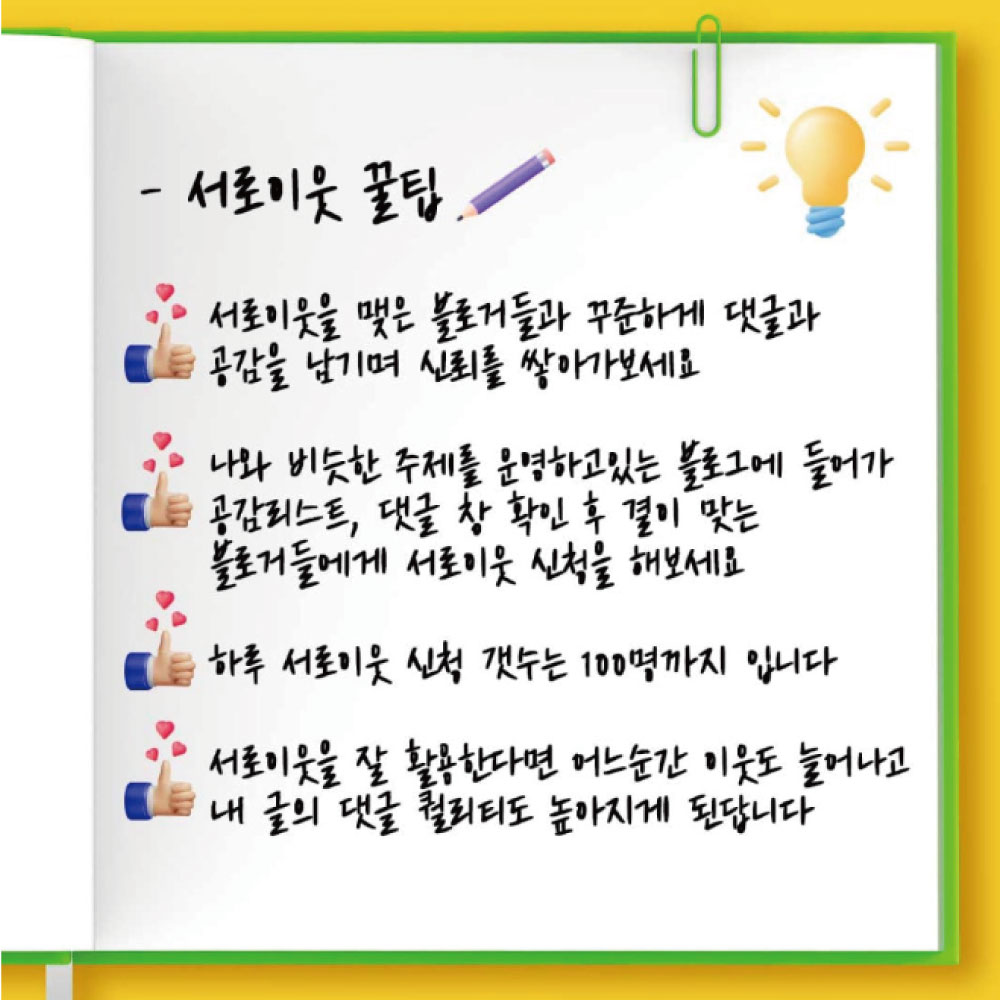 - 서로이웃 꿀팁
서로이웃을 맺은 블로거들과 꾸준하게 댓글과
공감을 남기며 신뢰를 쌓아가보세요
나와 비슷한 주제를 운영하고있는 블로그에 들어가
공감리스트, 댓글 창 확인 후 결이 맞는
블로거들에게 서로이웃 신청을 해보세요
하루 서로이웃 신청 갯수는 100명까지 입니다
서로이웃을 잘 활용한다면 어느순간 이웃도 늘어나고
내 글의 댓글 퀄리티도 높아지게 된답니다